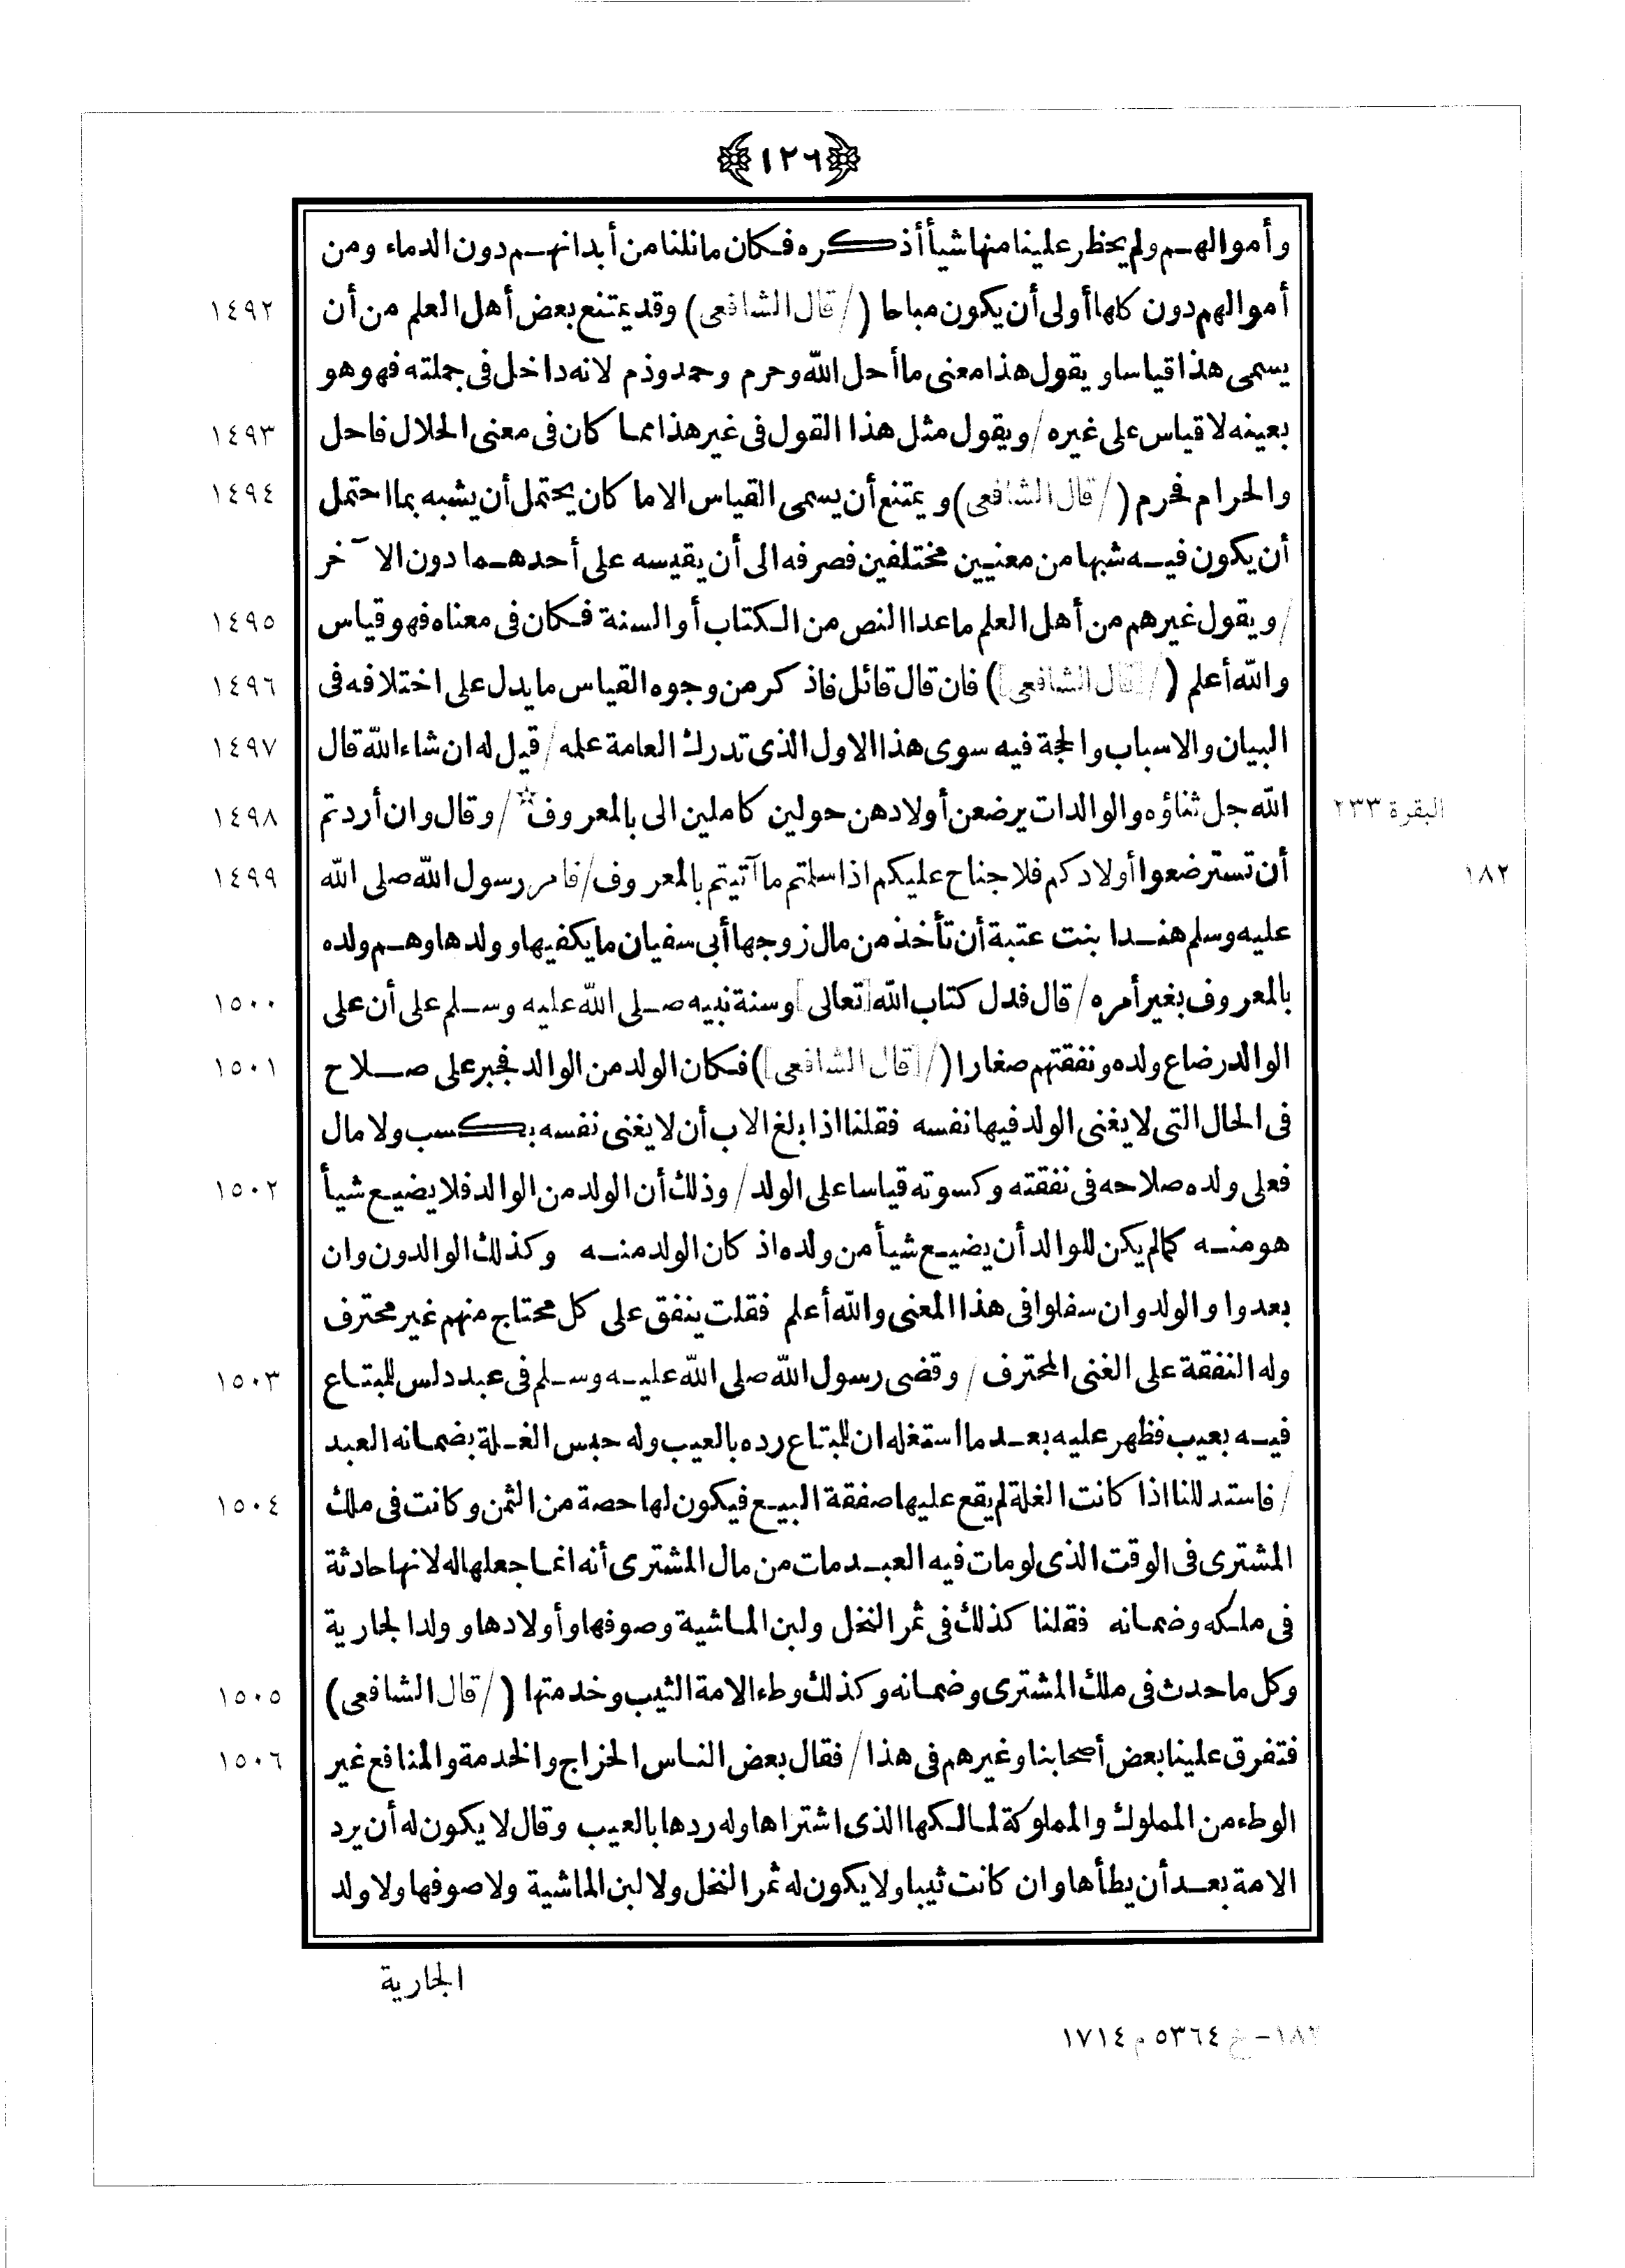 ١٢٦
وأموالهم ولم يحظر علينا منها شيأ أذكره فكان ما نلنا من أبدانهم دون الدماء ومن
أموالهم دون كلها أولى أن يكون مباحا (/ قال الشافعى) وقد يمتنع بعض أهل العلم من أن ١٤٩٢
يسمى هذا قياسا ويقول هذا معنى ما أحل الله وحرم وحمد وذم لانه داخل فى جملته فهو هو
بعينه لا قياس على غيره / ويقول مثل هذا القول فى غير هذا مما كان فى معنى الحلال فاحل ١٤٩٣
والحرام فحرم (/ قال الشافعى) ويمتنع أن يسمى القياس الا ما كان يحتمل أن يشبه بما احتمل ١٤٩٤
أن يكون فيه شبها من معنيين مختلفين فصرفه الى أن يقيسه على أحدهما دون الآخر
/ ويقول غيرهم من أهل العلم ما عدا النص من الكتاب أو السنة فكان فى معناه فهو قياس ١٤٩٥
والله أعلم (/ [قال الشافعى]) فان قال قائل فاذكر من وجوه القياس ما يدل على اختلافه فى ١٤٩٦
البيان والاسباب والحجة فيه سوى هذا الاول الذى تدرك العامة علمه / قيل له ان شاء الله قال ١٤٩٧
الله جل ثناؤه والوالدات يرضعن أولادهن حولين كاملين الى بالمعروف☆ / وقال وان أردتم ١٤٩٨ البقرة ٢٣٣
أن تسترضعوا أولادكم فلا جناح عليكم اذا سلمتم ما آتيتم بالمعروف / فامر رسول الله صلى الله ١٤٩٩ ١٨٢
عليه وسلم هندا بنت عتبة أن تأخذ من مال زوجها أبى سفيان ما يكفيها وولدها وهم ولده
بالمعروف بغير أمره / قال فدل كتاب الله [تعالى] وسنة نبيه صلى الله عليه وسلم على أن على ١٥٠٠
الوالد رضاع ولده ونفقتهم صغارا (/ [قال الشافعى]) فكان الولد من الوالد فجبر على صلاح ١٥٠١
فى الحال التى لا يغنى الولد فيها نفسه فقلنا اذا بلغ الاب أن لا يغنى نفسه بكسب ولا مال
فعلى ولده صلاحه فى نفقته وكسوته قياسا على الولد / وذلك أن الولد من الوالد فلا يضيع شيأ ١٥٠٢
هو منه كما لم يكن للوالد أن يضيع شيأ من ولده اذ كان الولد منه وكذلك الوالدون وان
بعدوا والولد وان سفلوا فى هذا المعنى والله أعلم فقلت ينفق على كل محتاج منهم غير محترف
وله النفقة على الغنى المحترف / وقضى رسول الله صلى الله عليه وسلم فى عبد دلس للمبتاع ١٥٠٣
فيه بعيب فظهر عليه بعد ما استغله ان للمبتاع رده بالعيب وله حبس الغلة بضمانه العبد
/ فاستدللنا اذا كانت الغلة لم يقع عليها صفقة البيع فيكون لها حصة من الثمن وكانت فى ملك ١٥٠٤
المشترى فى الوقت الذى لو مات فيه العبد مات من مال المشترى أنه انما جعلها له لانها حادثة
فى ملكه وضمانه فقلنا كذلك فى ثمر النخل ولبن الماشية وصوفها وأولادها وولد الجارية
وكل ما حدث فى ملك المشترى وضمانه وكذلك وطء الامة الثيب وخدمتها (/ قال الشافعى) ١٥٠٥
فتفرق علينا بعض أصحابنا وغيرهم فى هذا / فقال بعض الناس الخراج والخدمة والمنافع غير ١٥٠٦
الوطء من المملوك والمملوكة لمالكها الذى اشتراها وله ردها بالعيب وقال لا يكون له أن يرد
الامة بعد أن يطأها وان كانت ثيبا ولا يكون له ثمر النخل ولا لبن الماشية ولا صوفها ولا ولد
الجارية
١٨٢ - خ ٥٣٦٤ م ١٧١٤